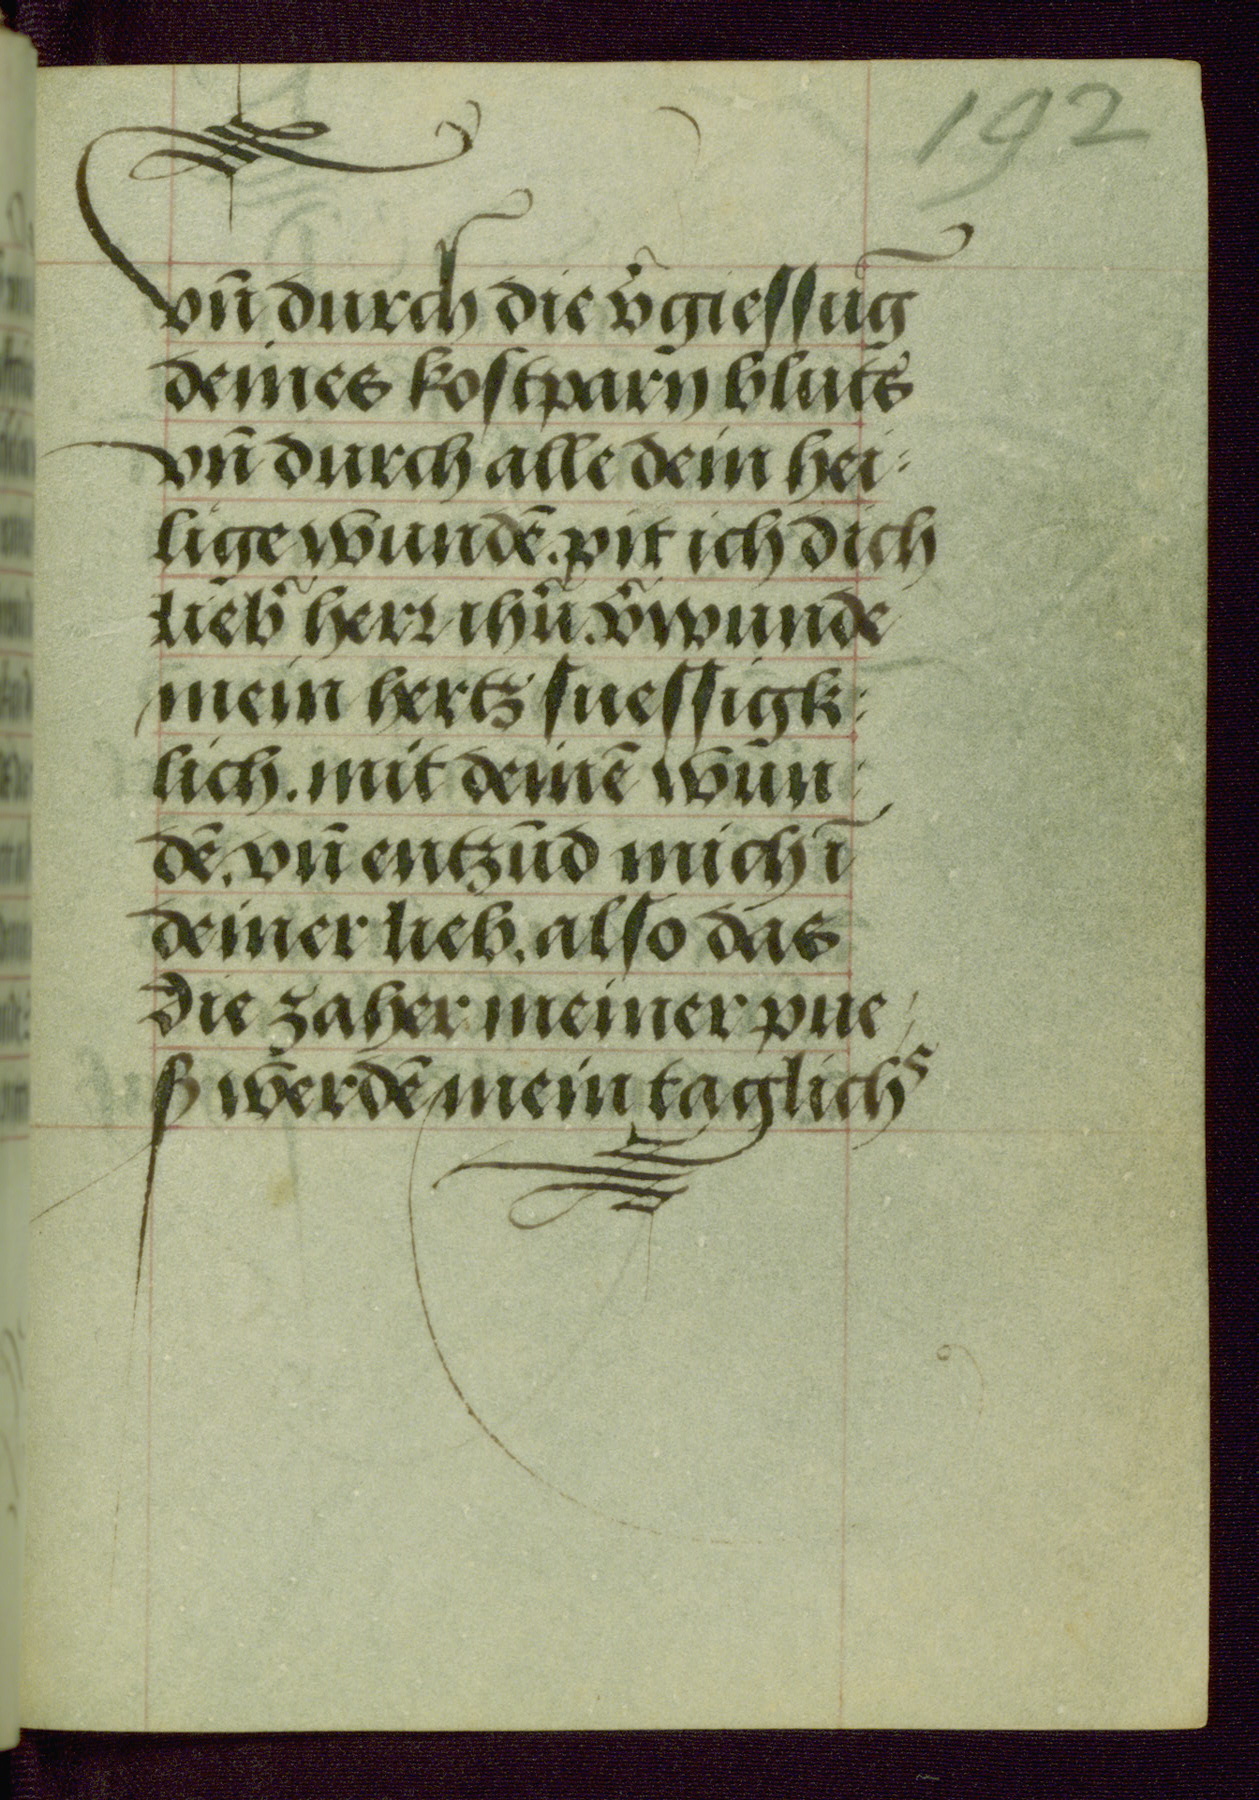 192
vn̄ durch die v̄gieſſūg
deines koſtparn̄ bluts
vn̄ durch alle dein hei⸗
lige wundē. pit ich dich
lieb᷑ herr ihū. v᷑wunde
mein hertz ſueſſigk⸗
lich. mit deinē wūn⸗
dē. vn̄ entzūd mich ī
deiner lieb. alſo das
die zaher meiner pue⸗
ß werdē mein taglichs